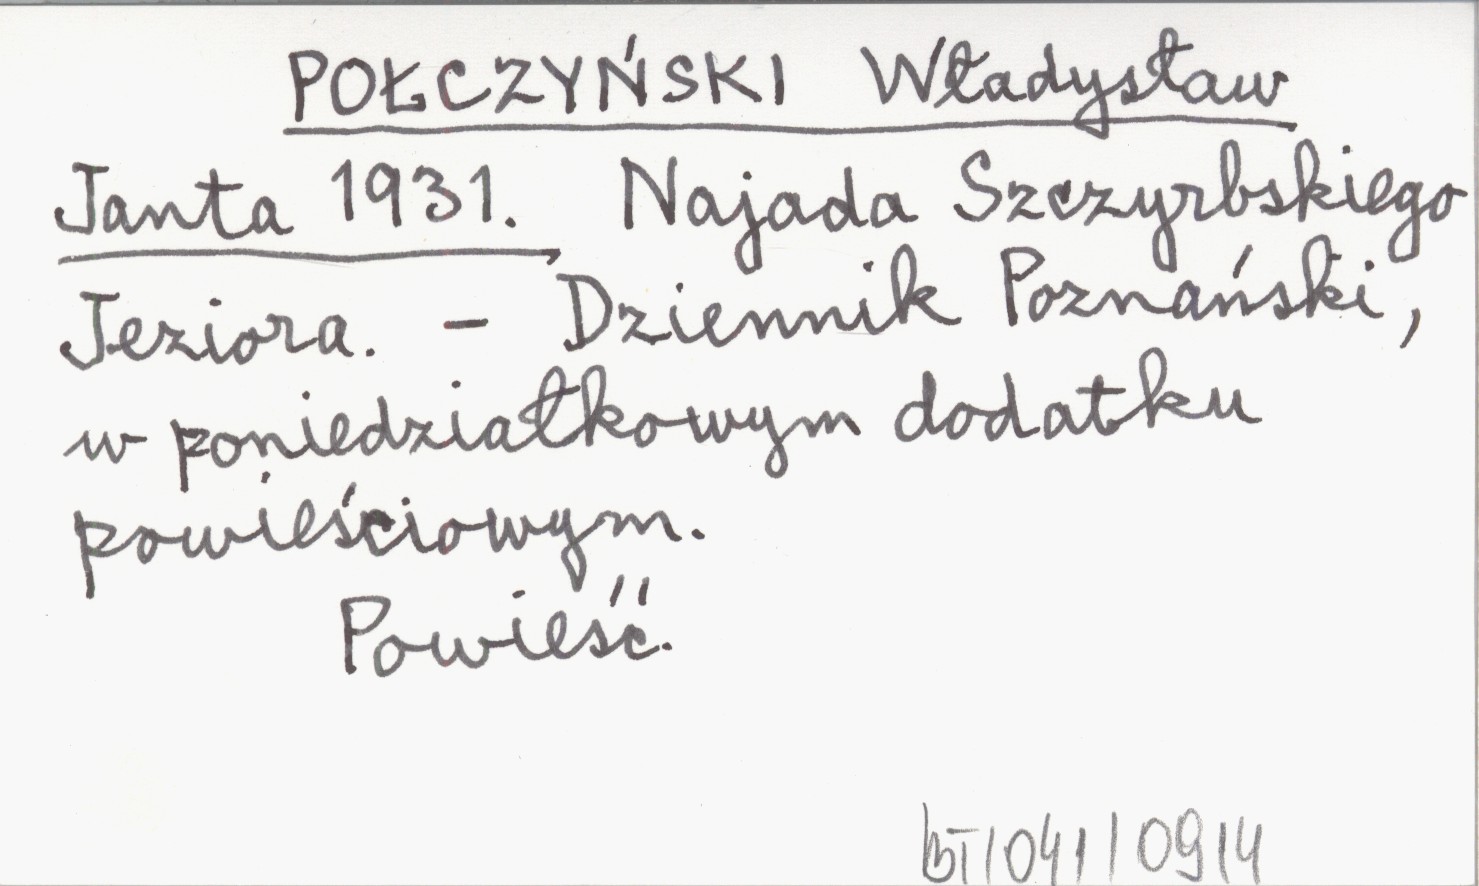 POŁCZYŃSKI Władysław
Janta 1931. Najada Szczyrbskiego
Jeziora. - Dziennik Poznański,
w poniedziałkowym dodatku
powieściowym.
Powieść.
BT/041/0914